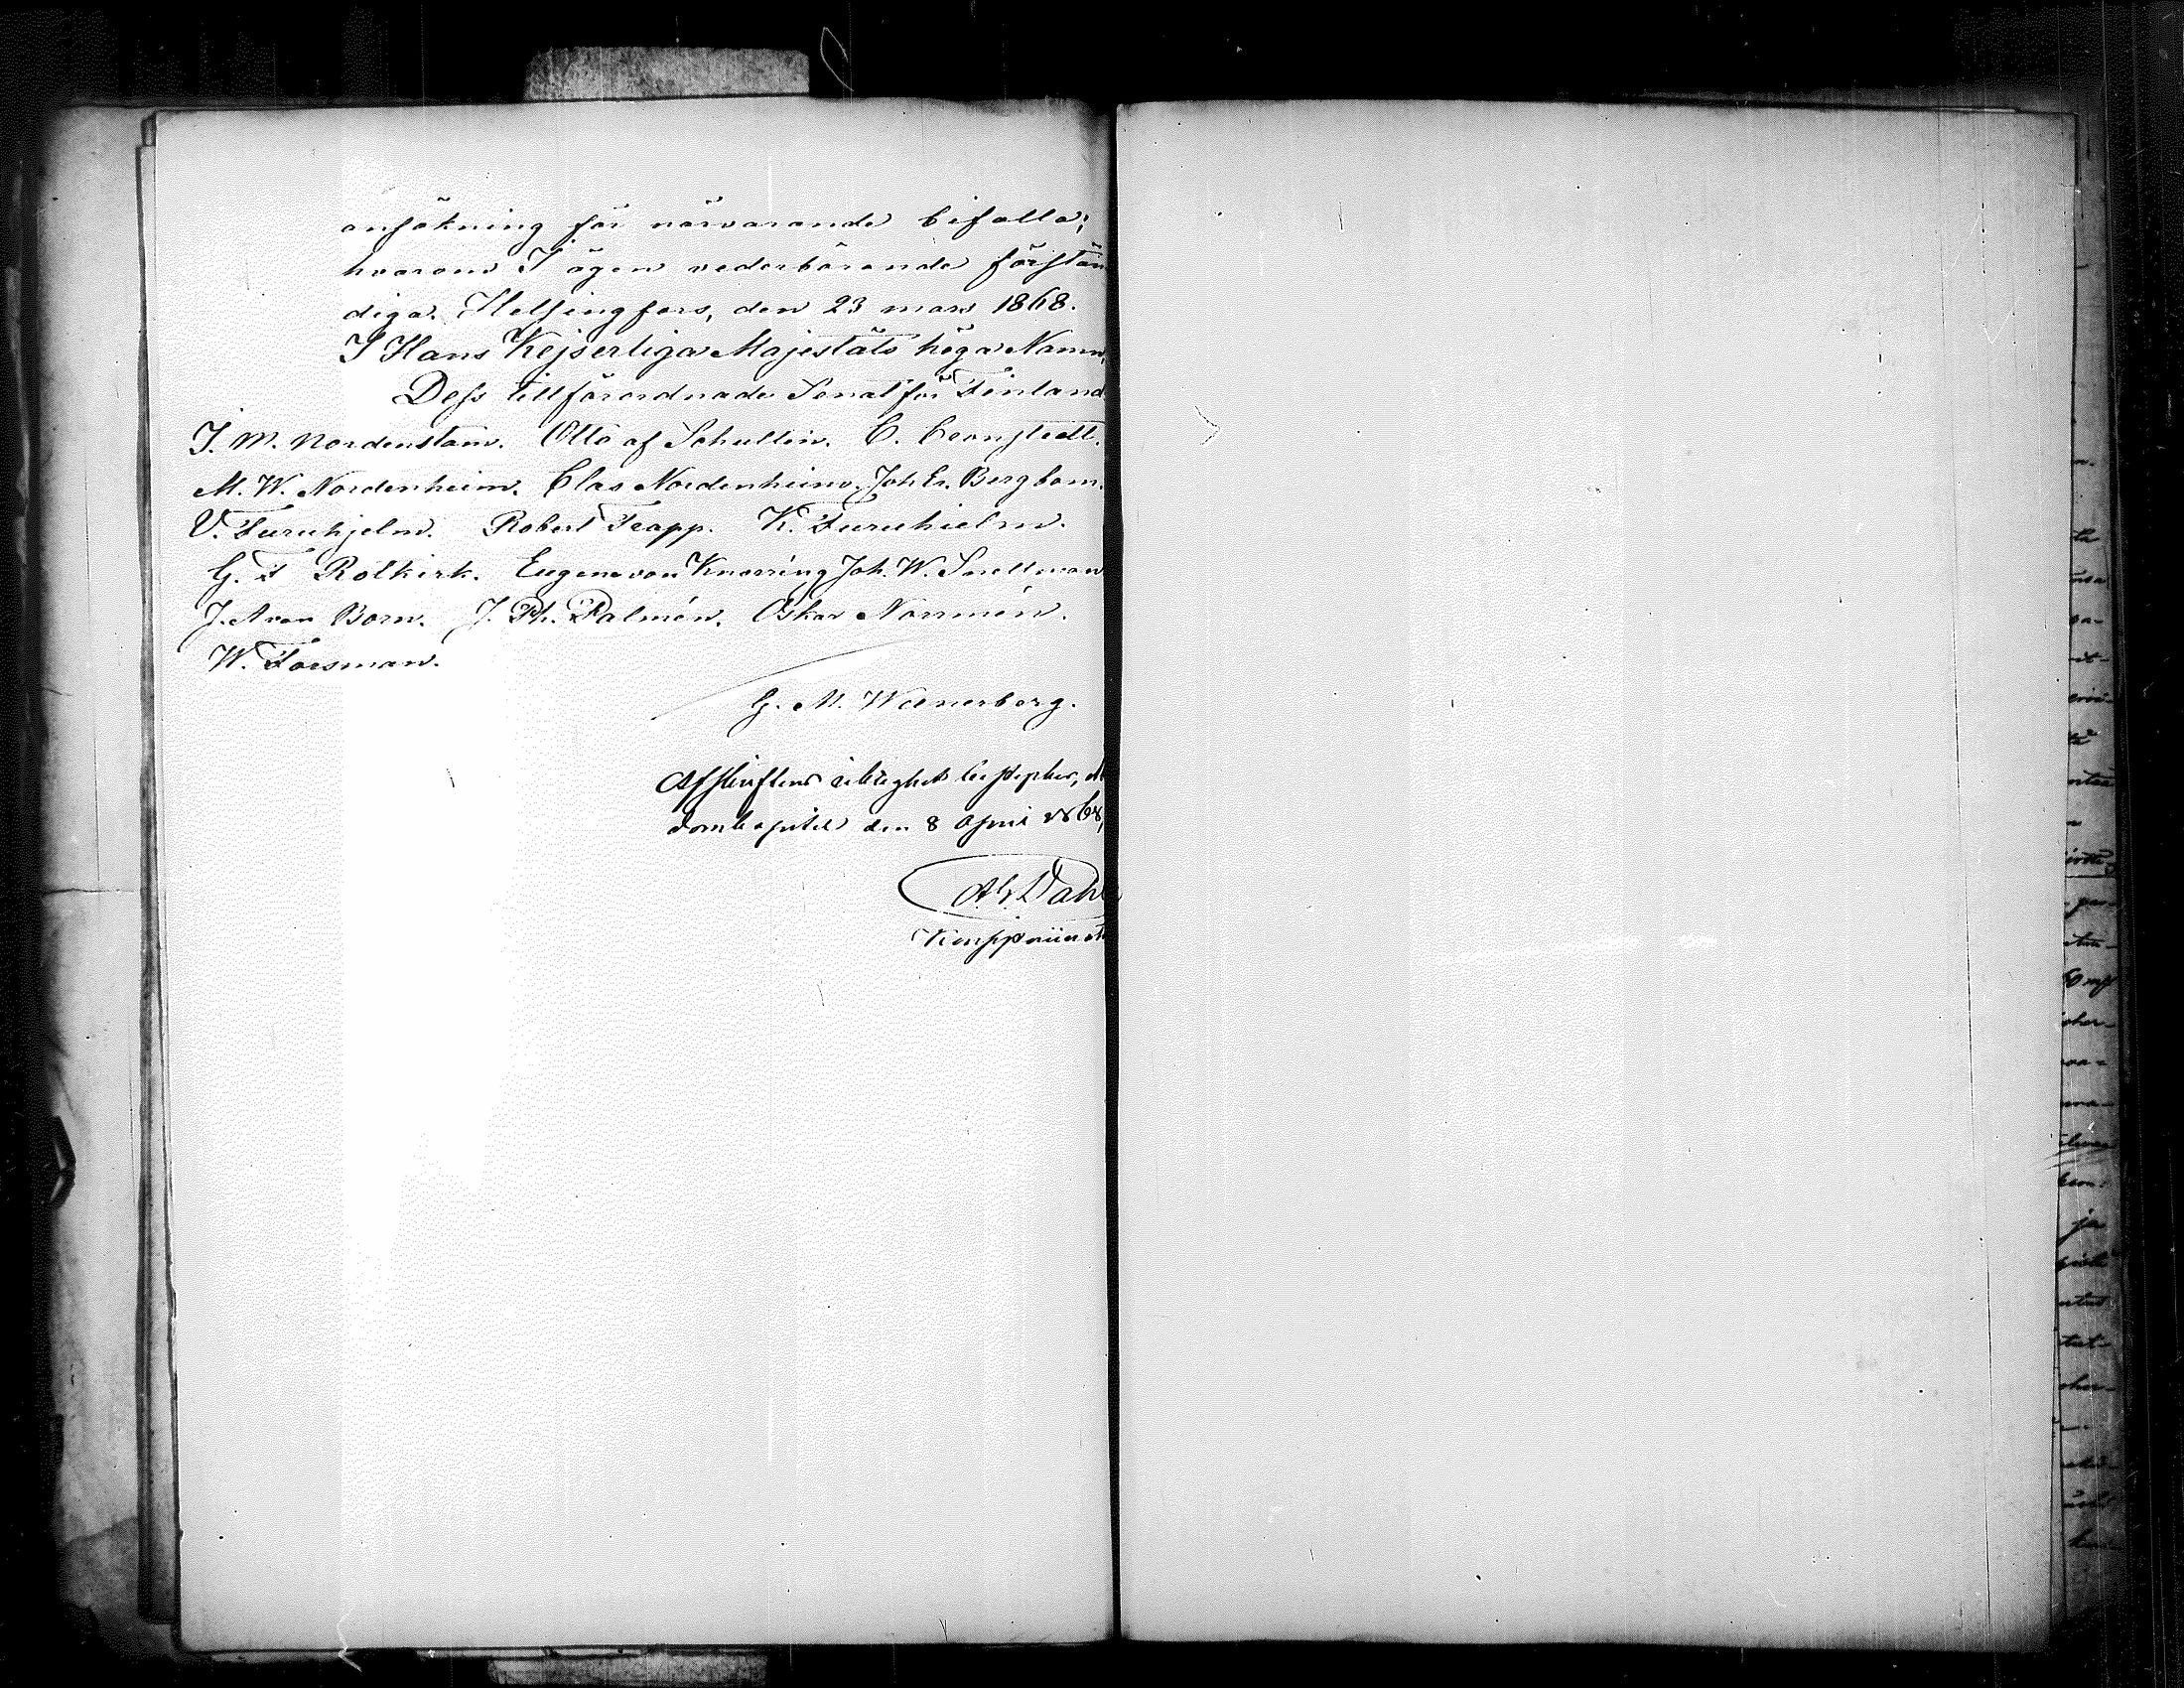 ansökning för närvarande bifalla;
hvarom I ägen vederbörande förstän
diga. Helsingfors, den 23 mars 1868.
I Hans Kejserliga Majestäts höga Namn,
Dess tillförordnade Senat för Finland
J. M. Nordenstam. Otto af Schultén. C. Cronstedt.
M. W. Nordenheim. Clas Nordenheim. Joh Er. Bergbom.
V. Furuhjelm. Robert Trapp. K. Furuhielm.
G. F Rotkirk. Eugene von Knorring Joh. W. Snellman
J. A von Born. J. Ph. Palmén. Oskar Norrmén.
W. Forsman.
G. M. Wænerberg.
Afskriftens riktighet
domkapitel den 8 April 1868,
Dahl